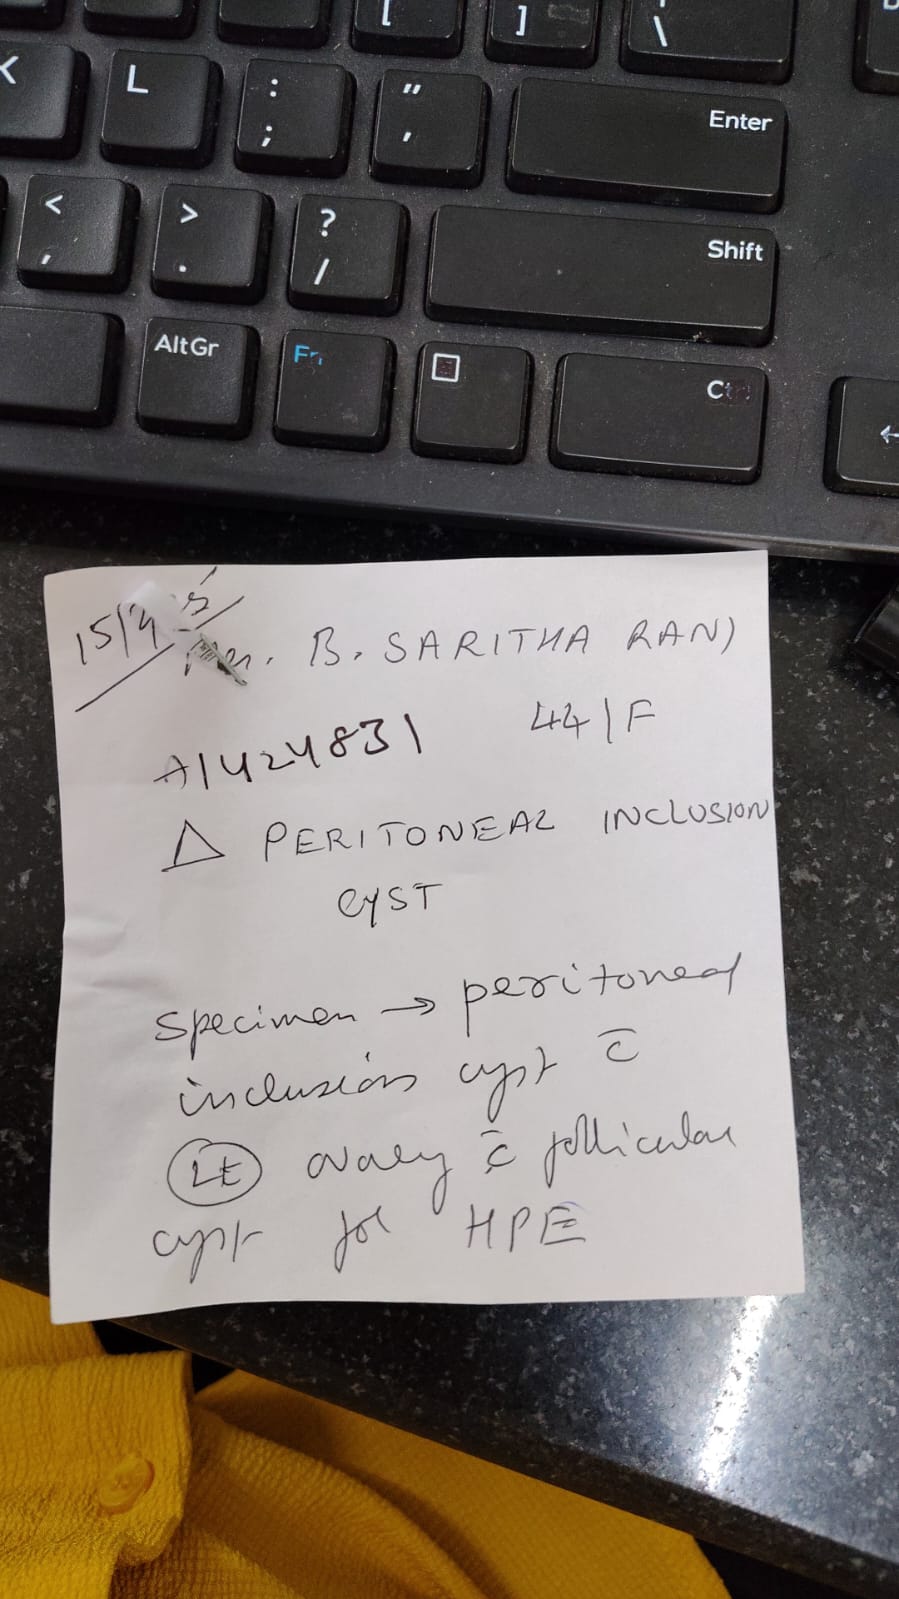 [ ] \
K L : ; " ' Enter
< , > . ? / Shift
AltGr Fn Ctrl
←
B. SARITHA RANI
A1424831 44/F
Δ PERITONEAL INCLUSION
CYST
specimen → peritoneal
inclusion cyst c̄
Lt ovary c̄ follicular
cyst for HPE